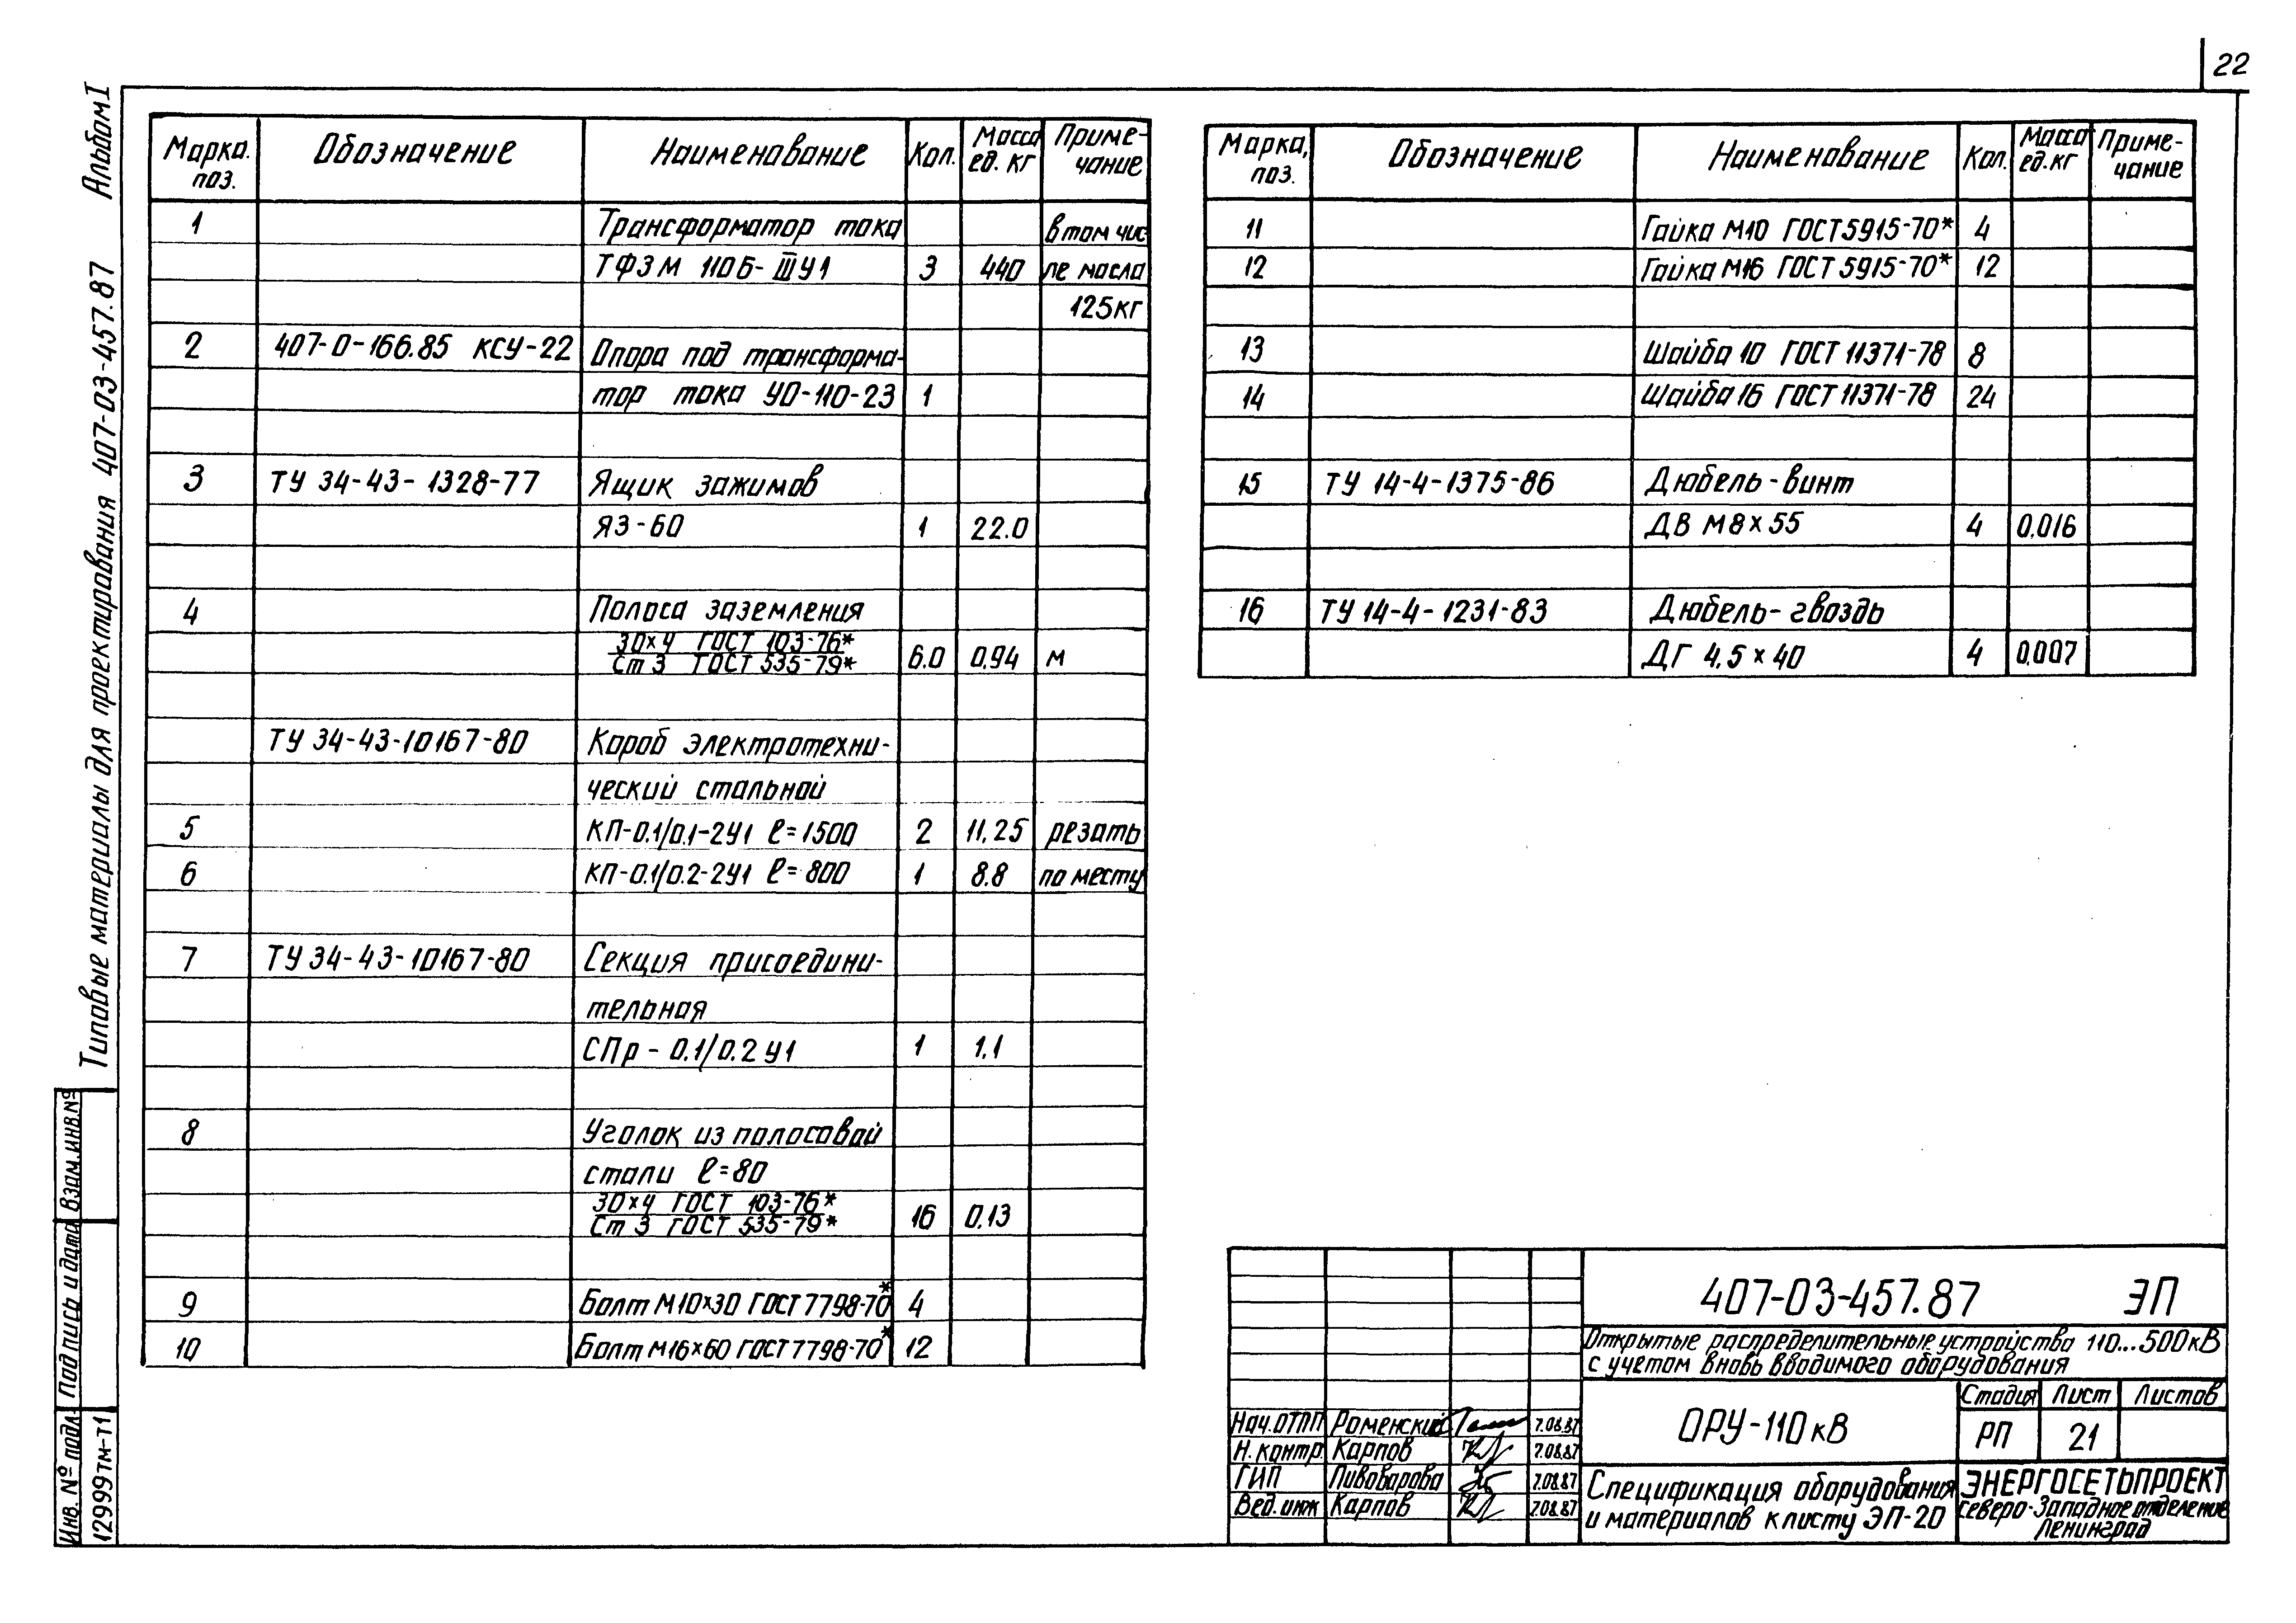 22
Альбом I
Типовые материалы для проектирования 407-03-457.87
Марка. поз. Обозначение Наименование Кол. Масса ед. кг Приме-чание
1 Трансформатор тока в том чис
ТФЗМ 110Б-III У1 3 440 ле масла
125кг
2 407-0-166.85 КСУ-22 Опора под трансформа-
тор тока УО-110-23 1
3 ТУ 34-43-1328-77 Ящик зажимов
ЯЗ-60 1 22.0
4 Полоса заземления
30×4 ГОСТ 103-76*
Ст 3 ГОСТ 535-79* 6.0 0,94 м
ТУ 34-43-10167-80 Короб электротехни-
ческий стальной
5 КП-0.1/0.1-2У1 ℓ=1500 2 11,25 резать
6 КП-0.1/0.2-2У1 ℓ=800 1 8.8 по месту
7 ТУ 34-43-10167-80 Секция присоедини-
тельная
СПр-0.1/0.2 У1 1 1,1
8 Уголок из полосовой
стали ℓ=80
30×4 ГОСТ 103-76*
Ст 3 ГОСТ 535-79* 16 0,13
9 Болт М10×30 ГОСТ 7798-70* 4
10 Болт М16×60 ГОСТ 7798-70* 12
Марка, поз. Обозначение Наименование Кол. Масса ед.кг Приме-чание
11 Гайка М10 ГОСТ 5915-70* 4
12 Гайка М16 ГОСТ 5915-70* 12
13 Шайба 10 ГОСТ 11371-78 8
14 Шайба 16 ГОСТ 11371-78 24
15 ТУ 14-4-1375-86 Дюбель-винт
ДВ М8×55 4 0,016
16 ТУ 14-4-1231-83 Дюбель-гвоздь
ДГ 4,5×40 4 0,007
407-03-457.87 ЭП
Открытые распределительные устройства 110...500кВ
с учетом вновь вводимого оборудования
ОРУ-110кВ
Стадия Лист Листов
РП 21
Нач.ОТПП Роменский 7.08.87
Н.контр. Карпов 7.08.87
ГИП Пивоварова 7.08.87
Вед.инж Карпов 7.08.87
Спецификация оборудования
и материалов к листу ЭП-20
ЭНЕРГОСЕТЬПРОЕКТ
Северо-Западное отделение
Ленинград
Инв. № подл. Подпись и дата Взам.инв.№
12999тм-т1